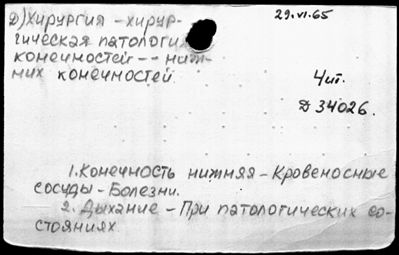 Д) Хирургия - хирур-
гическая патология
конечностей -- ниж-
них конечностей.
29.VI.65
Чит.
Д 34026.
1. Конечность нижняя - Кровеносные
сосуды - Болезни.
2. Дыхание - При патологических со-
стояниях